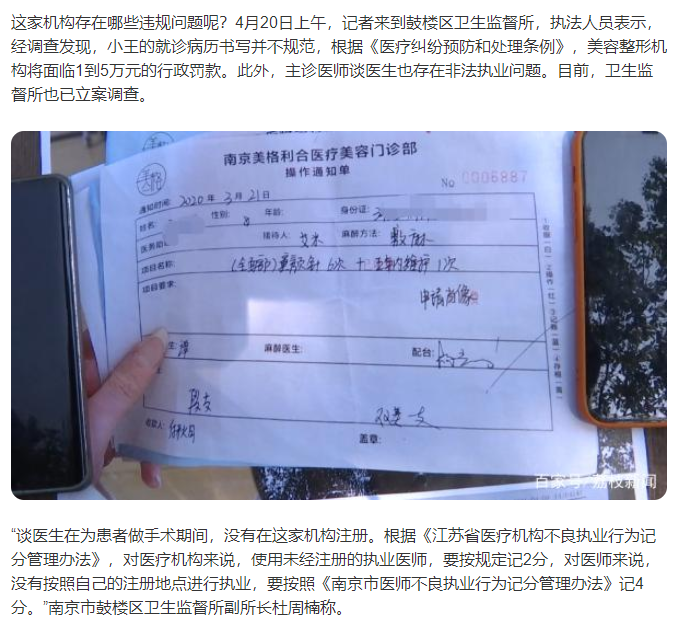 这家机构存在哪些违规问题呢？4月20日上午，记者来到鼓楼区卫生监督所，执法人员表示，
经调查发现，小王的就诊病历书写并不规范，根据《医疗纠纷预防和处理条例》，美容整形机
构将面临1到5万元的行政罚款。此外，主诊医师谈医生也存在非法执业问题。目前，卫生监
督所也已立案调查。
南京美格利合医疗美容门诊部
操作通知单
No 0006887
通知时间: 2020年3月21日
姓名: 性别: 年龄: 身份证:
接待人: 艾木 麻醉方法: 敷麻
项目名称: 6次 + 1次
项目要求:
申请肖像
生: 谭 麻醉医生: 配台:
盖章:
百家号/荔枝新闻
“谈医生在为患者做手术期间，没有在这家机构注册。根据《江苏省医疗机构不良执业行为记
分管理办法》，对医疗机构来说，使用未经注册的执业医师，要按规定记2分，对医师来说，
没有按照自己的注册地点进行执业，要按照《南京市医师不良执业行为记分管理办法》记4
分。”南京市鼓楼区卫生监督所副所长杜周楠称。